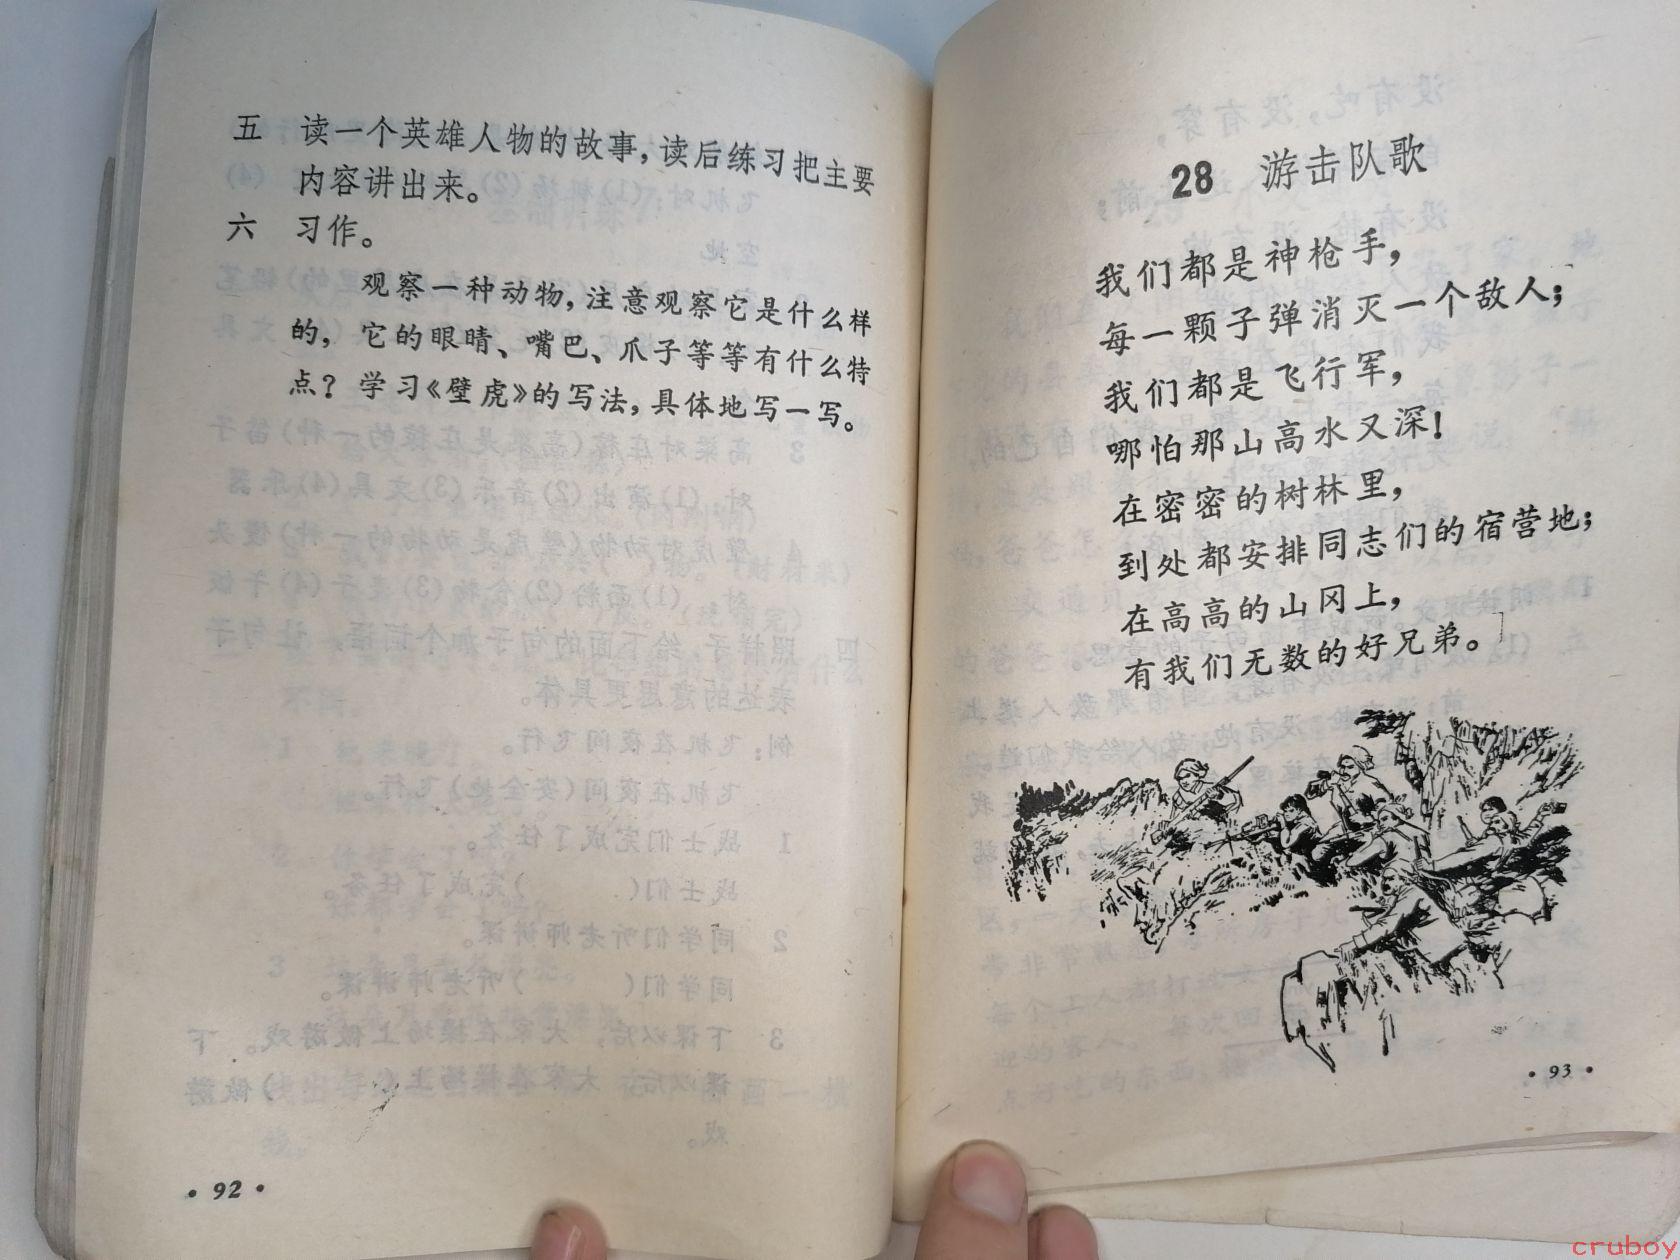 五 读一个英雄人物的故事，读后练习把主要
内容讲出来。
六 习作。
观察一种动物，注意观察它是什么样
的，它的眼睛、嘴巴、爪子等等有什么特
点？学习《壁虎》的写法，具体地写一写。
·92·
28 游击队歌
我们都是神枪手，
每一颗子弹消灭一个敌人；
我们都是飞行军，
哪怕那山高水又深！
在密密的树林里，
到处都安排同志们的宿营地；
在高高的山冈上，
有我们无数的好兄弟。
·93·
cruboy